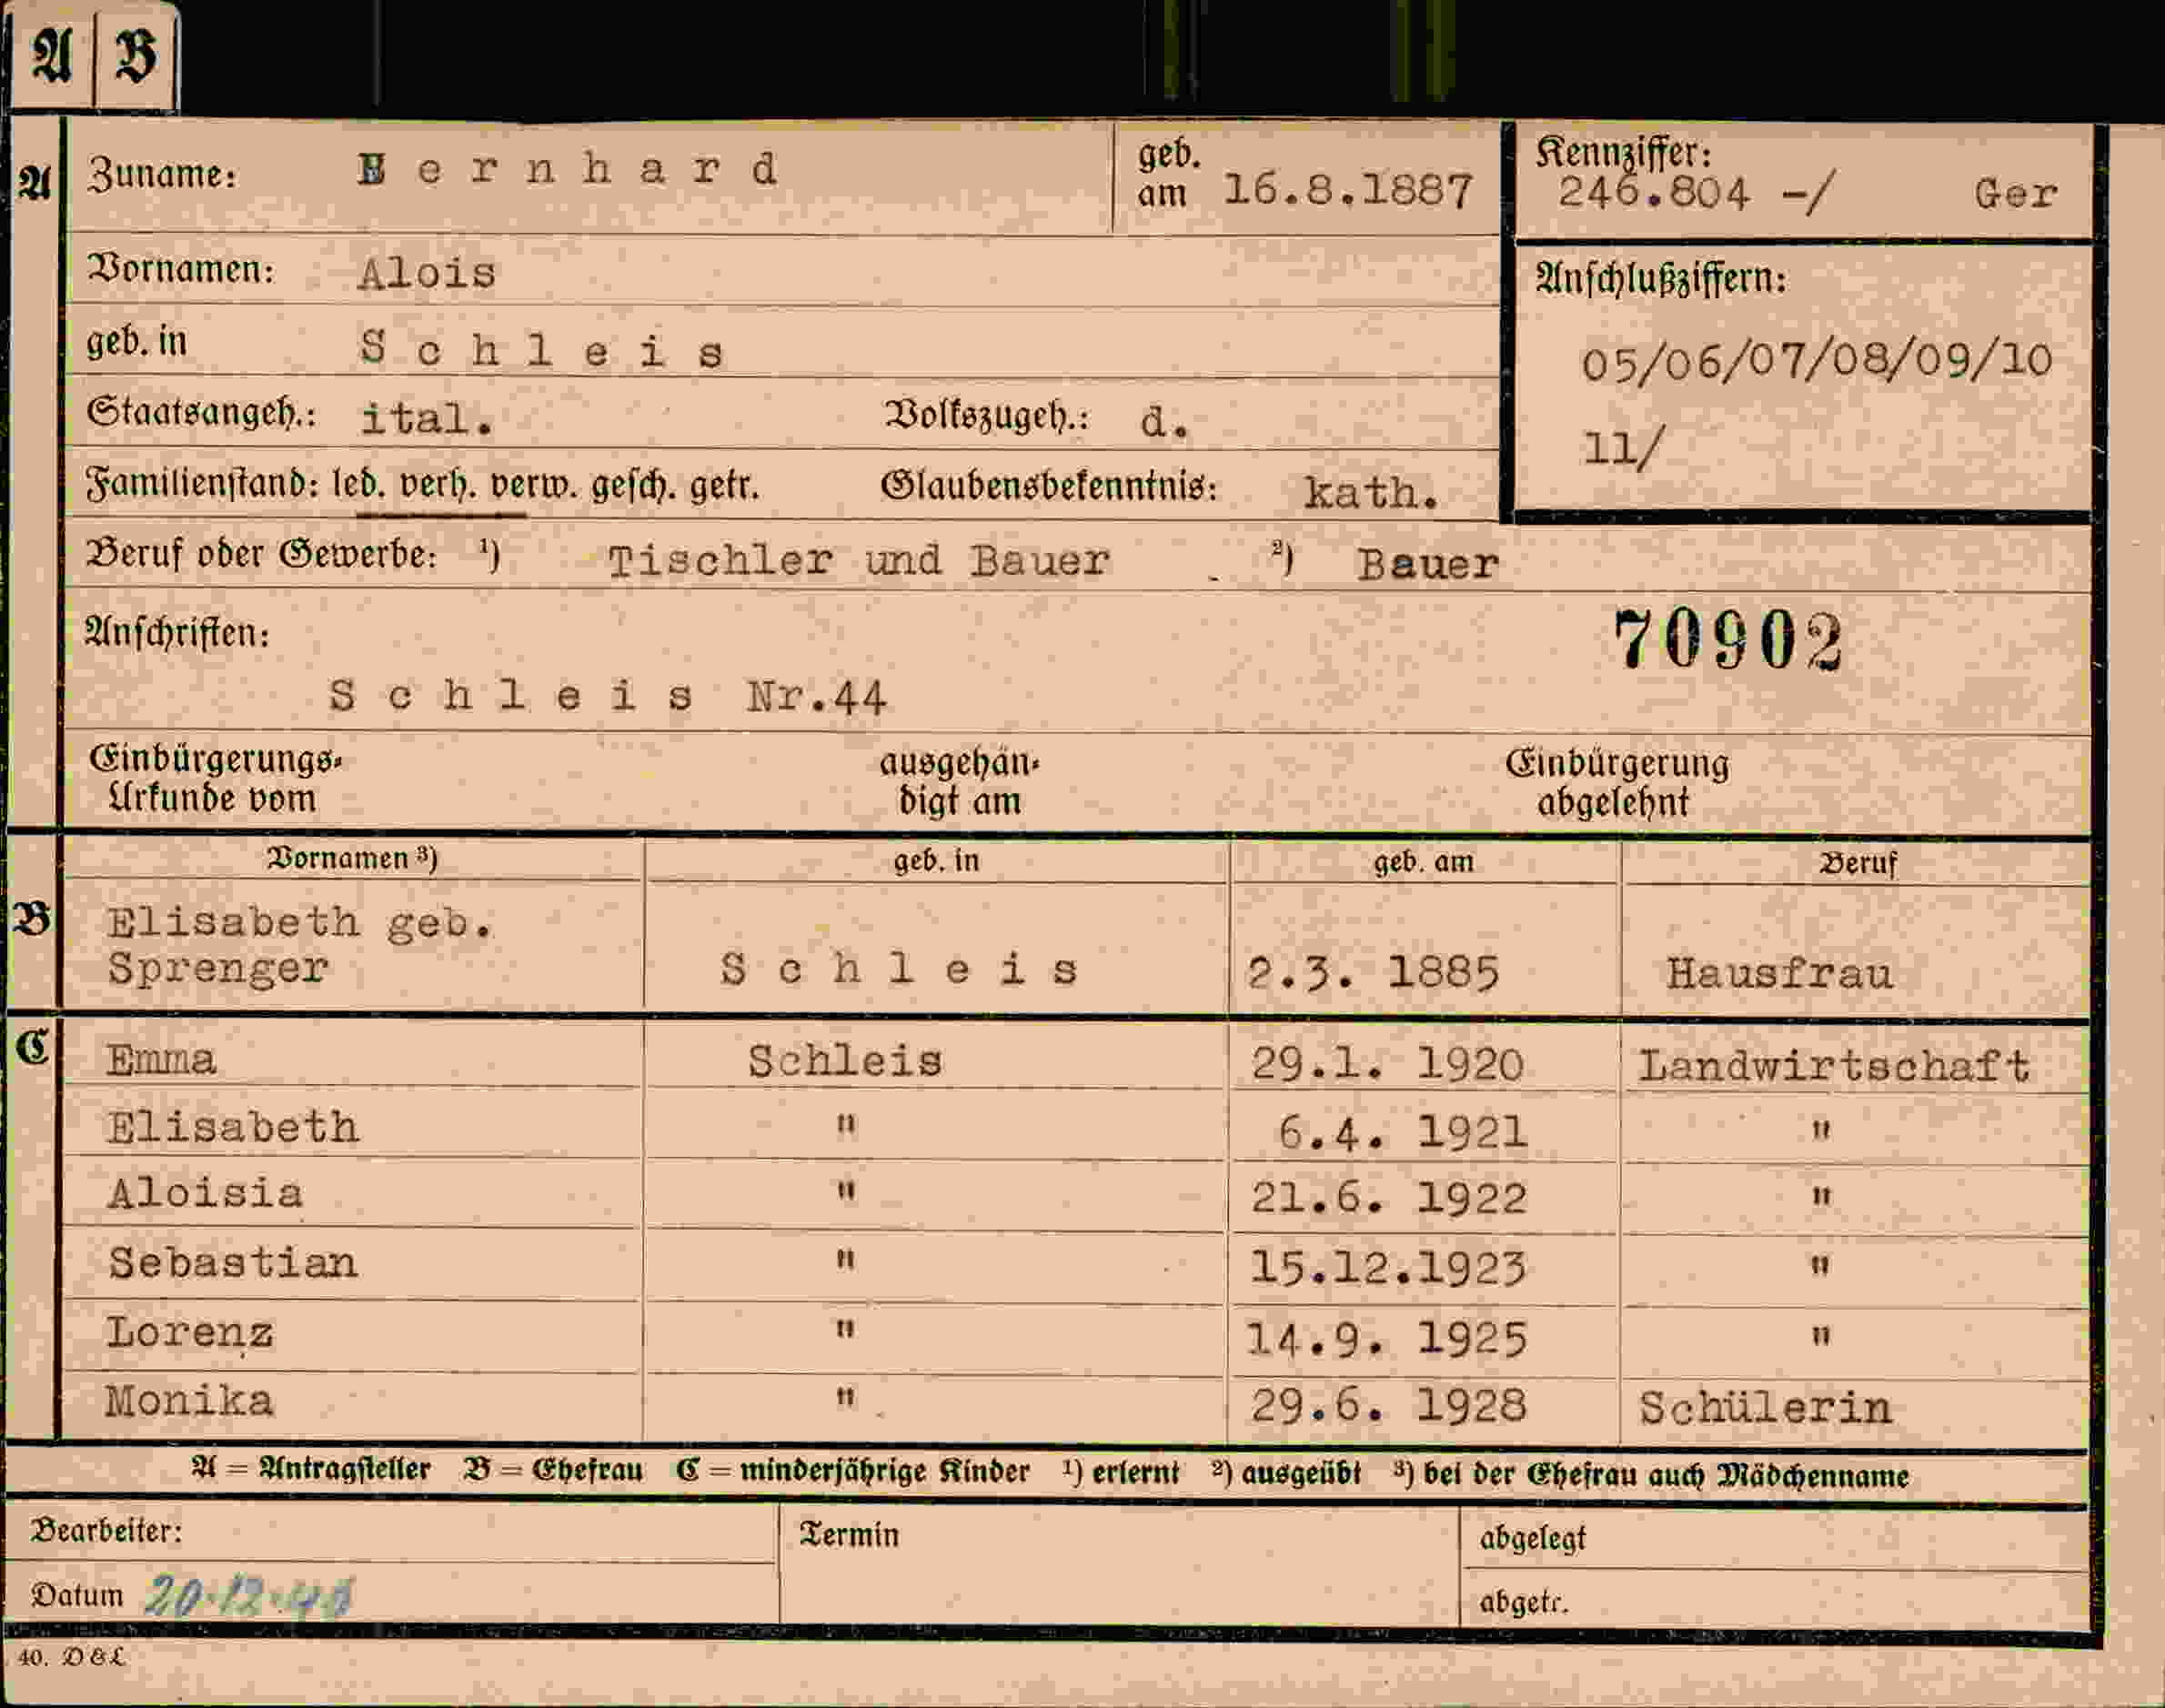 A B
A Zuname: Bernhard geb. am 16.8.1887 Kennziffer: 246.804 -/ Ger
Vornamen: Alois
Anschlußziffern:
geb. in Schleis
05/06/07/08/09/10
Staatsangeh.: ital. Volkszugeh.: d.
11/
Familienstand: led. verh. verw. gesch. getr. Glaubensbekenntnis: kath.
Beruf oder Gewerbe: ¹) Tischler und Bauer ²) Bauer
Anschriften:
70902
Schleis Nr.44
Einbürgerungs-Urkunde vom ausgehändigt am Einbürgerung abgelehnt
Vornamen ³) geb. in geb. am Beruf
B Elisabeth geb.
Sprenger Schleis 2.3. 1885 Hausfrau
C Emma Schleis 29.1. 1920 Landwirtschaft
Elisabeth " 6.4. 1921 "
Aloisia " 21.6. 1922 "
Sebastian " 15.12.1923 "
Lorenz " 14.9. 1925 "
Monika " 29.6. 1928 Schülerin
A = Antragsteller B = Ehefrau C = minderjährige Kinder ¹) erlernt ²) ausgeübt ³) bei der Ehefrau auch Mädchenname
Bearbeiter: Termin abgelegt
Datum abgetr.
40. D & L